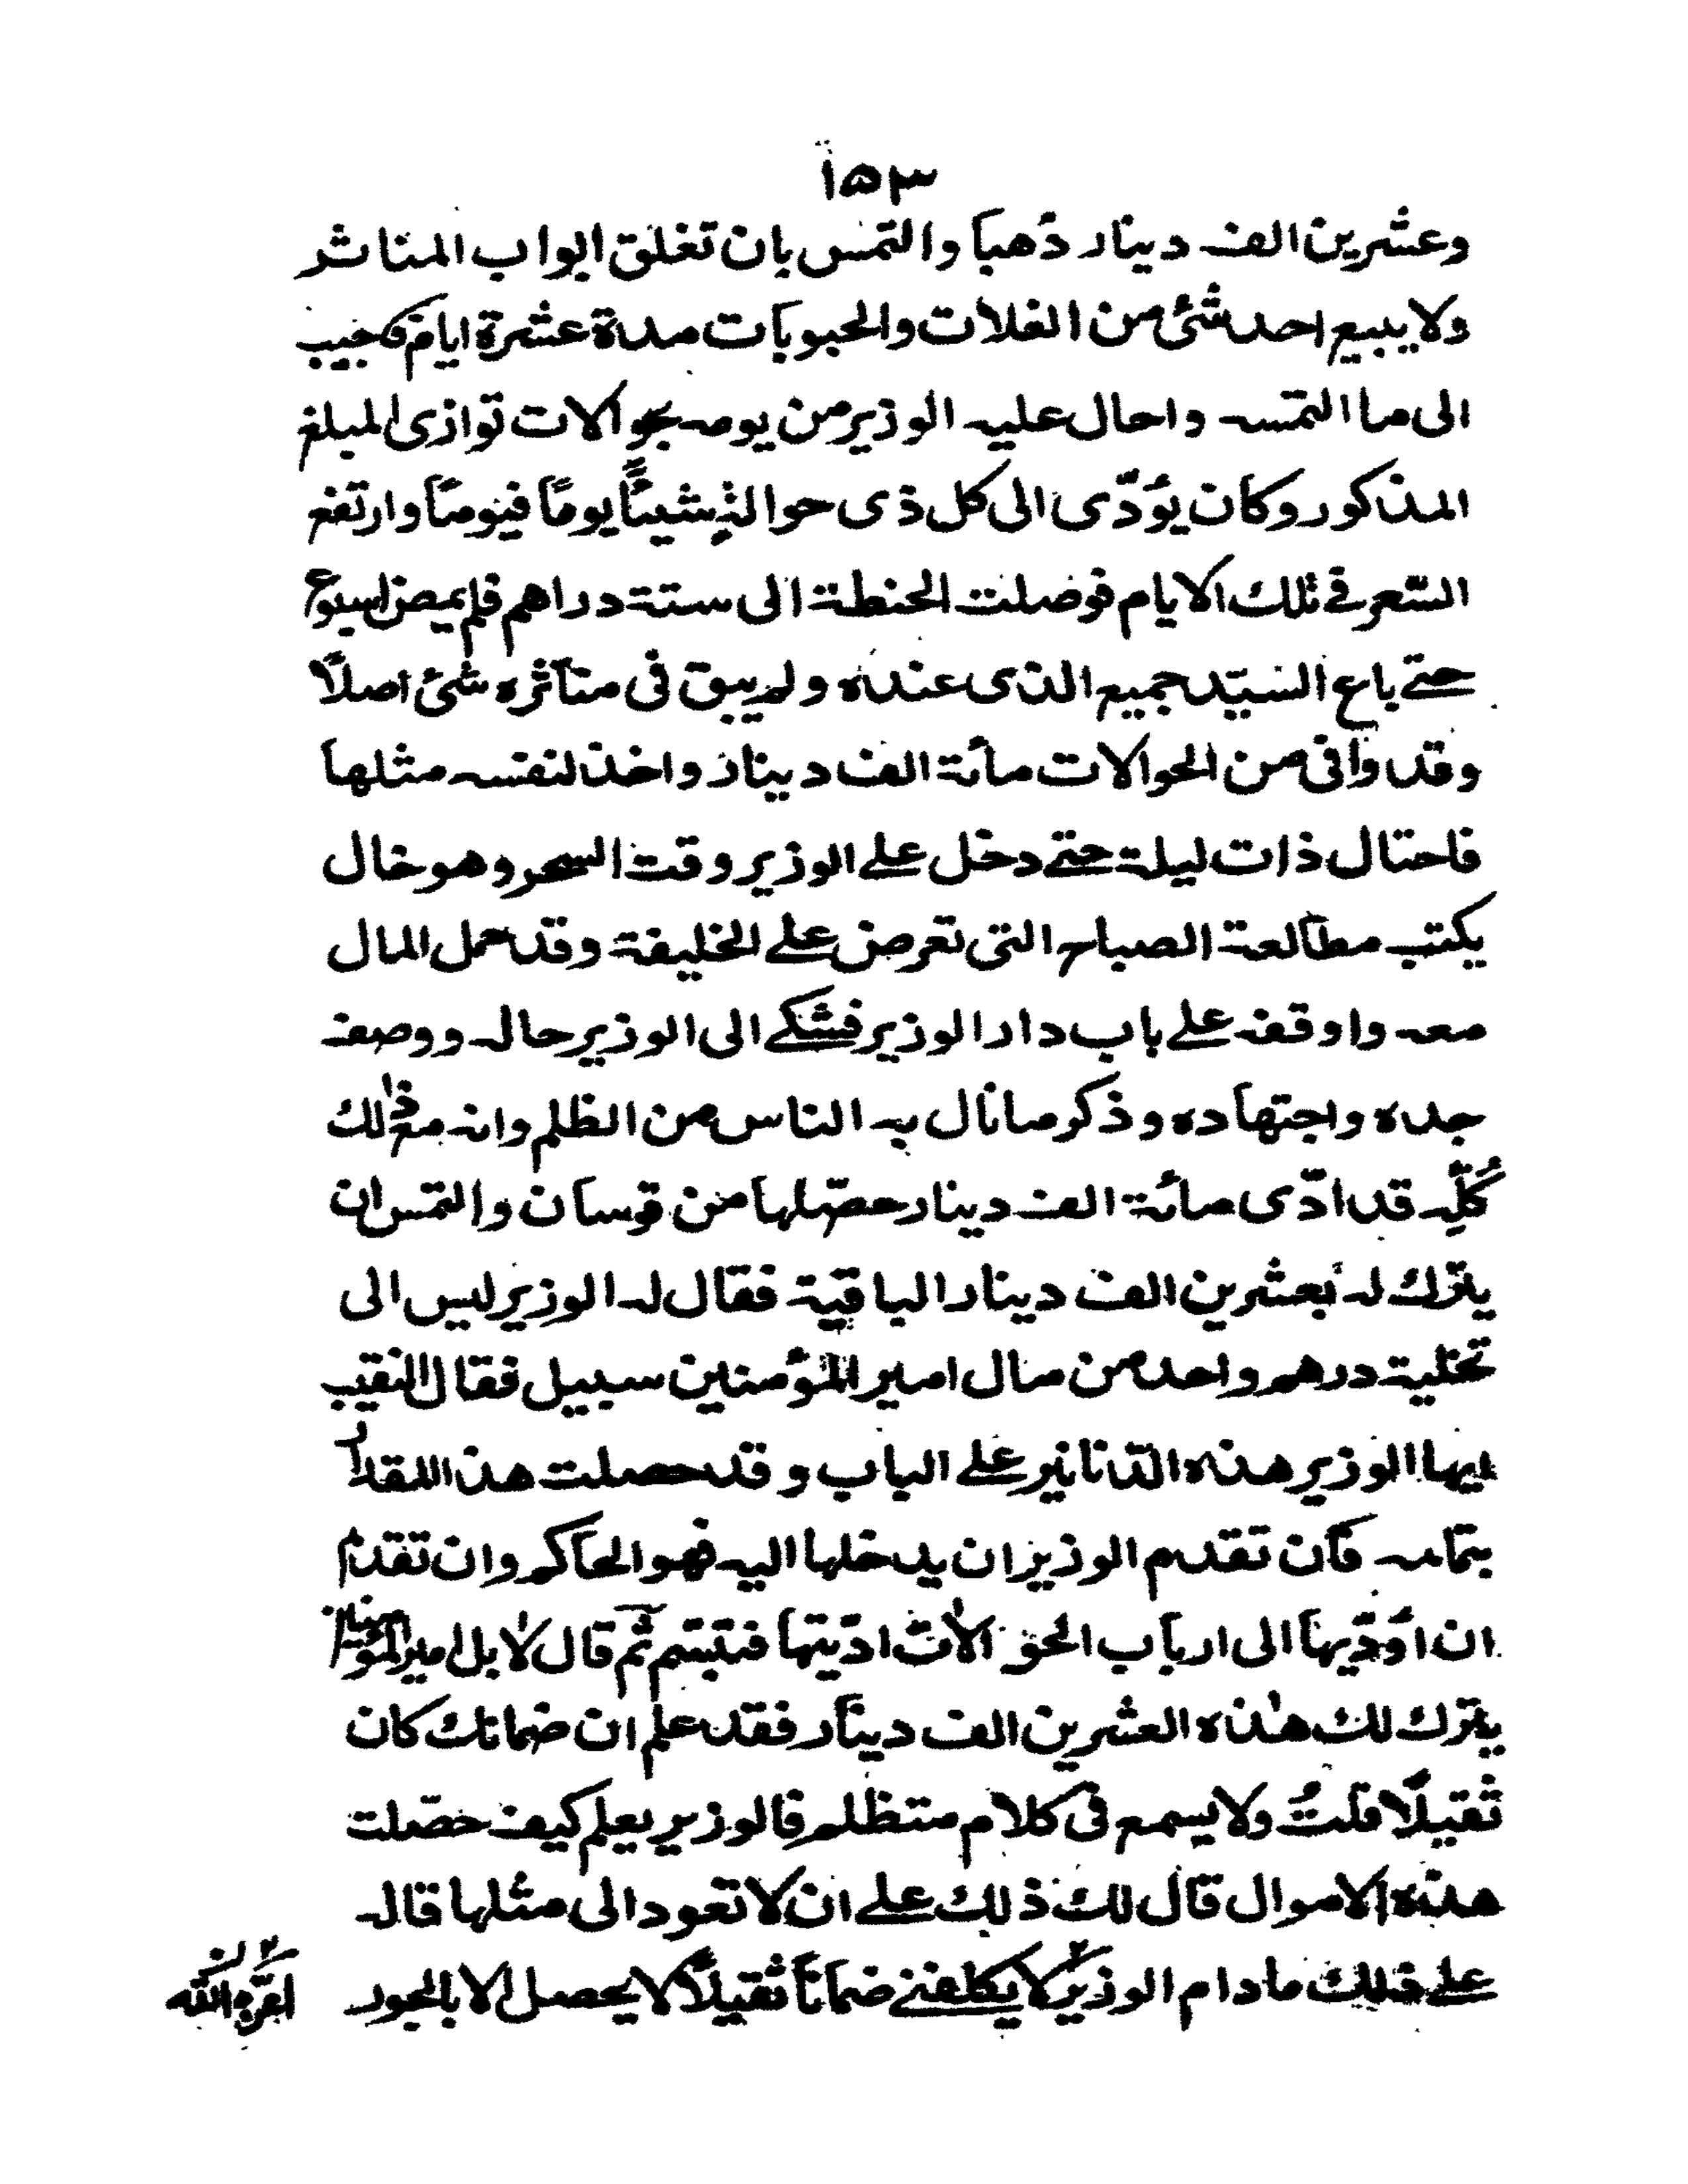 ١٥٣
وعشرين الف دينار ذهبا والتمس بان تغلق ابواب المناثر
ولا يبيع احد شئ من الغلات والحبوبات مدة عشرة ايام فاجيب
الى ما التمسه واحال عليه الوزير من يومه بحوالات توازى المبلغ
المذكور وكان يؤدّى الى كل ذى حوالةٍ شيئًا يومًا فيومًا وارتفع
السّعر فى تلك الايام فوصلت الحنطة الى ستة دراهم فلم يمض اسبوع
حتى باع السيّد جميع الذى عنده ولم يبق فى مناثره شئ اصلًا
وقد وافى من الحوالات مائة الف دينار واخذ لنفسه مثلها
فاحتال ذات ليلة حتى دخل على الوزير وقت السحر وهو خال
يكتب مطالعة الصباح التى تعرض على الخليفة وقد حمل المال
معه واوقفه على باب دار الوزير فشكى الى الوزير حاله ووصف
جده واجتهاده وذكر ما نال به الناس من الظلم وانه مع ذٰلك
كُلِّه قد ادّى مائة الف دينار حصّلها من قوسان والتمس ان
يترك له بعشرين الف دينار الباقية فقال له الوزير ليس الى
تخلية درهم واحد من مال امير المؤمنين سبيل فقال النقيب
ايها الوزير هذه الدّنانير على الباب وقد حصلت هذا المقدار
بتمامه فان تقدم الوزير ان يدخلها اليه فهو الحاكم وان تقدم
ان اؤدّيها الى ارباب الحق الاٰن ادّيتها فتبسّم ثم قال لا بل امير المؤمنين
يترك لك هٰذه العشرين الف دينار فقد علم ان ضمانك كان
ثقيلًا قلتُ ولا يسمع فى كلام متظلم فالوزير يعلم كيف حصّلت
هذه الاموال قال لك ذلك على ان لا تعود الى مثلها قال
على ذلك ما دام الوزير لا يكلفنى ضمانًا ثقيلًا لا يحصل الا بالجور
اعزه الله